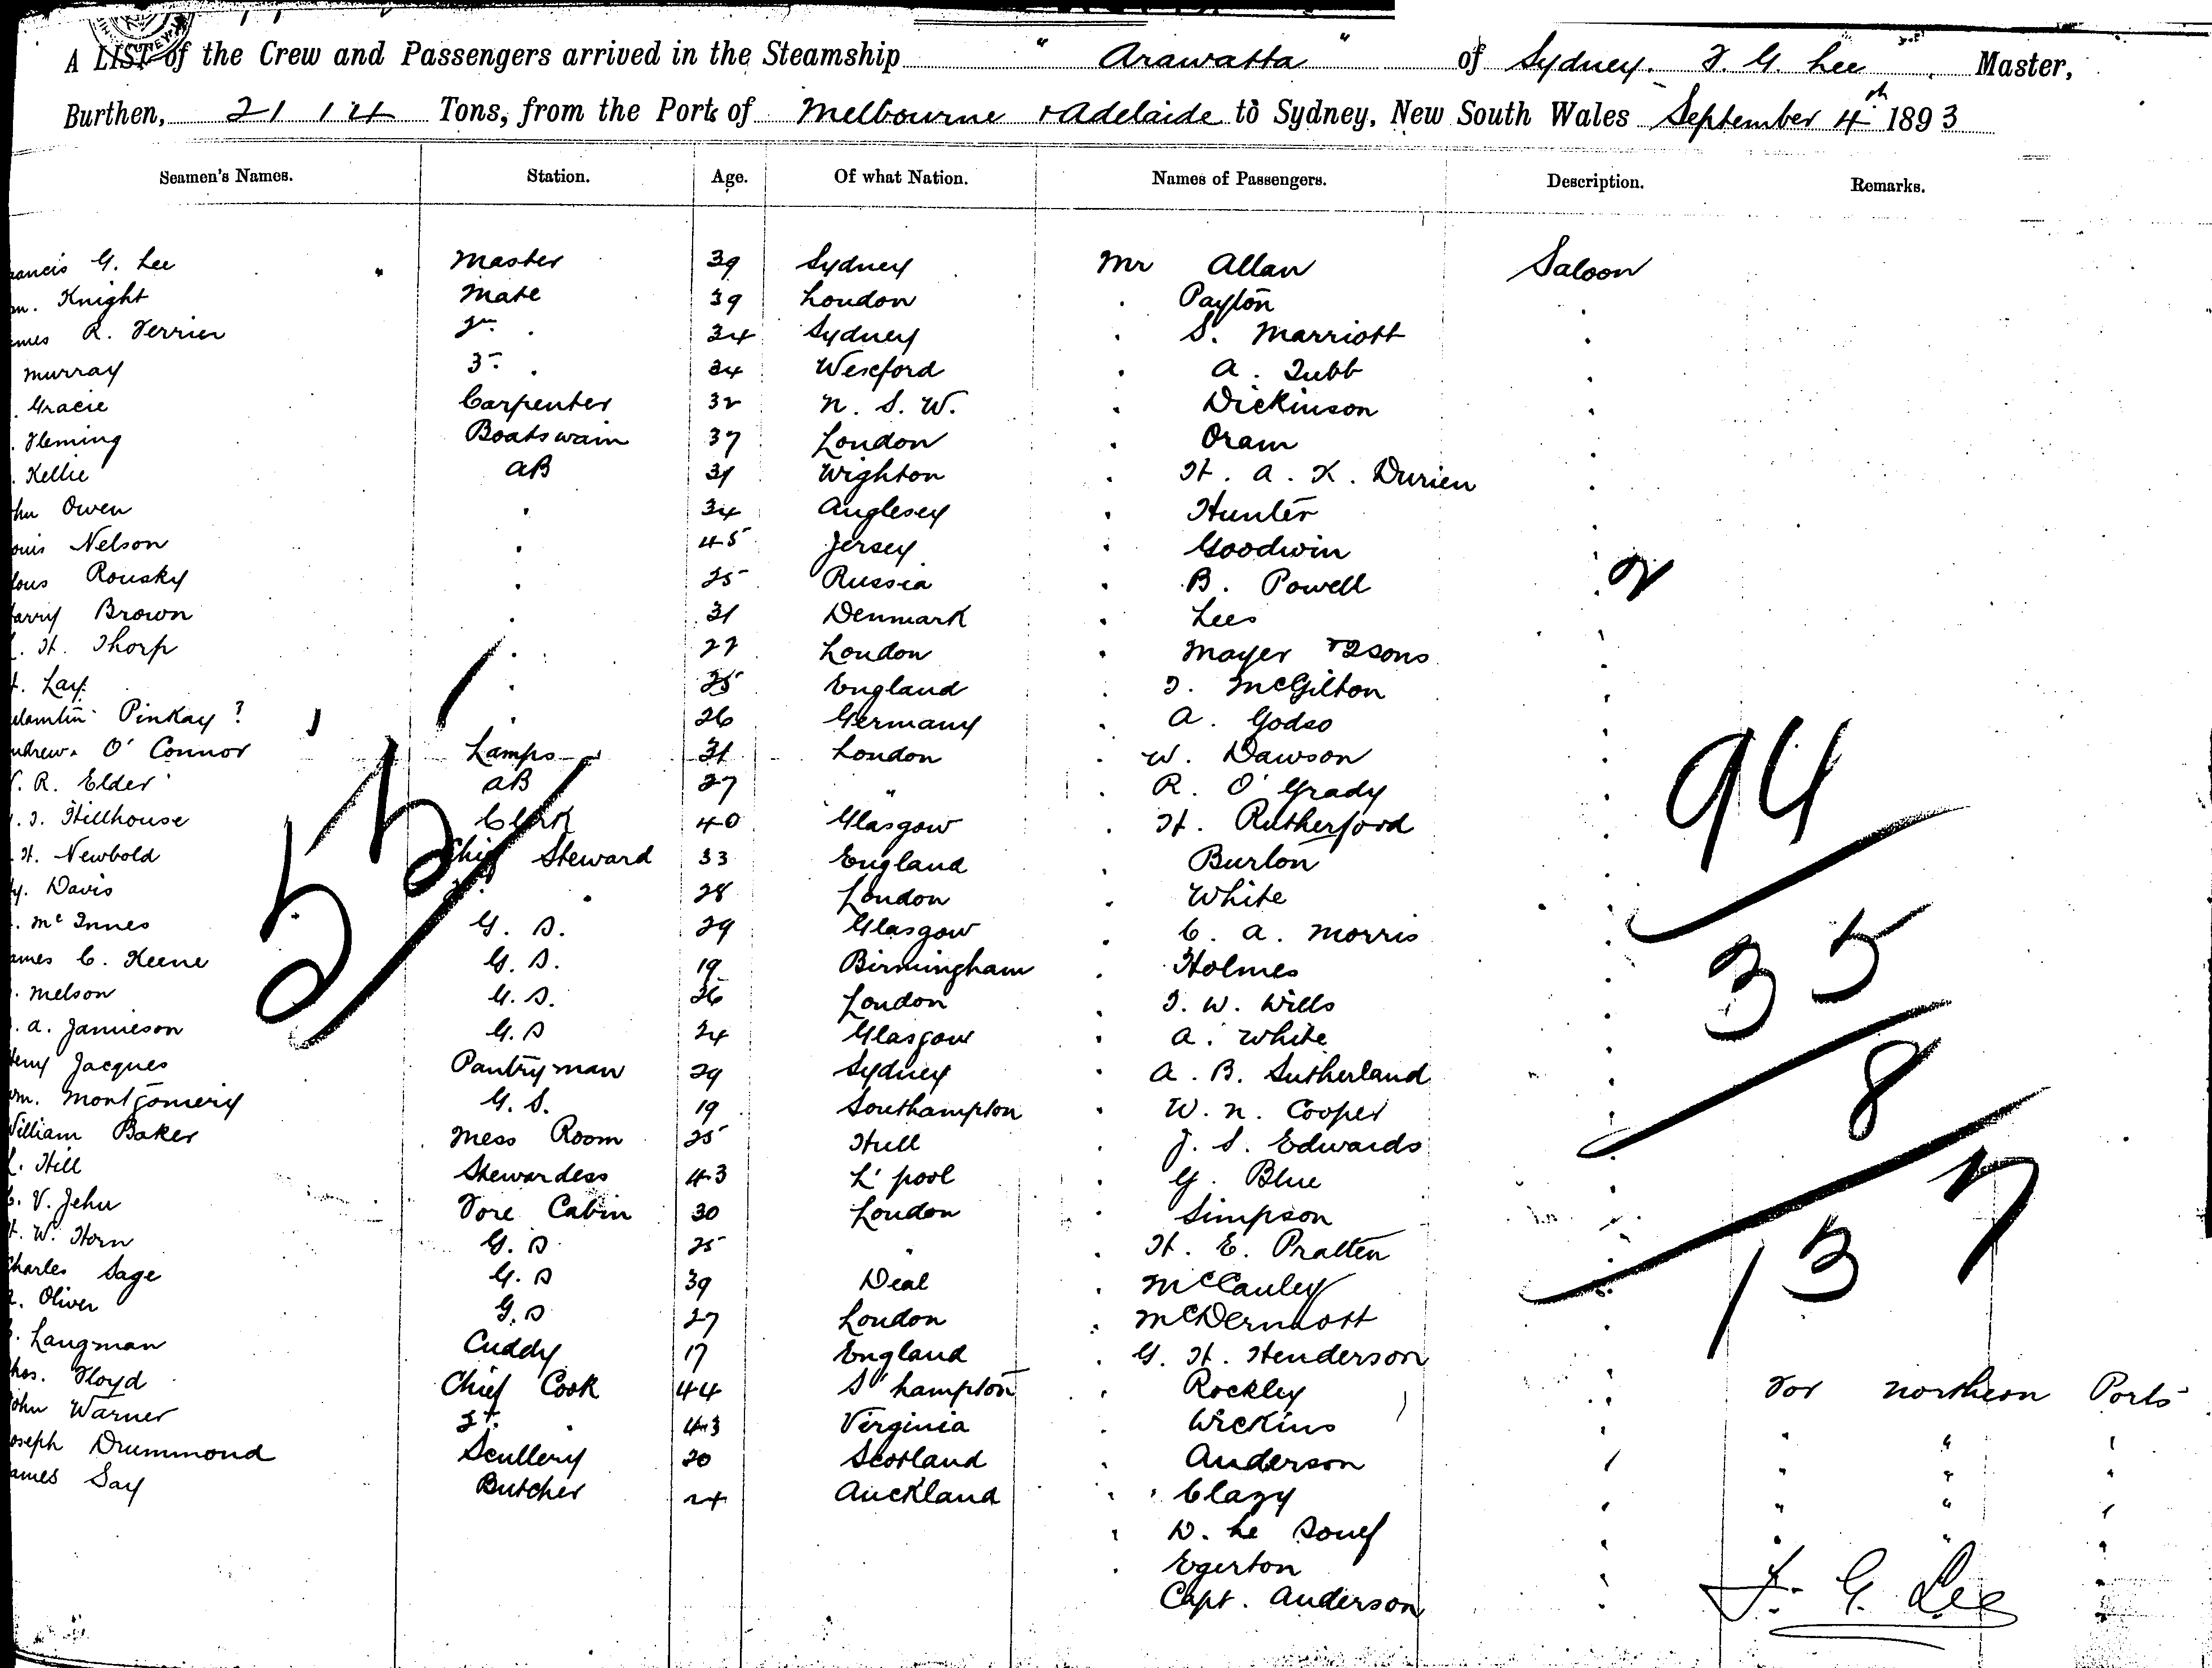 A LIST of the Crew and Passengers arrived in the Steamship " Arawatta " of Sydney. F. G. Lee, Master,
Burthen, 2114 Tons, from the Port of Melbourne + Adelaide to Sydney, New South Wales September 4th 1893
Seamen's Names. Station. Age. Of what Nation. Names of Passengers. Description. Remarks.
ancis G. Lee Master 39 Sydney Mr Allan Saloon
m. Knight Mate 39 London . Payton .
ames R. Ferrier 2nd . 34 Sydney . S. Marriott .
Murray 3 . 24 Wexford . A. Tubb .
. Gracie Carpenter 32 N. S. W. . Dickinson .
. Fleming Boatswain 37 London . Oram .
. Kellie AB 31 Wighton . H. A. K. Durien .
hn Owen . 34 Anglesey . Hunter .
ouis Nelson . 45 Jersey . Goodwin .
lous Rousky . 25 Russia . B. Powell . 2
arry Brown . 31 Denmark . Lees
. H. Thorp . 22 London . Mayer + 2 sons .
. Lay . 25 England . J. McGilton .
Pinkay ? . 26 Germany . A. Godso .
ndrew O'Connor Lamps 31 London . W. Dawson .
. R. Elder AB 27 " . R. O'Grady .
. J. Hillhouse Clerk 40 Glasgow . H. Rutherford . 94
. H. Newbold Chief Steward 33 England . Burton .
y. Davis 2nd . 28 London . White .
. McInnes G. S. 29 Glasgow . C. A. Morris .
ames C. Keene G. S. 19 Birmingham . Holmes . 35
. Melson G. S. 26 London . J. W. Wills .
. A. Jamieson G. S 24 Glasgow . A. White .
enry Jacques Pantryman 29 Sydney . A. B. Sutherland .
m. Montgomery G. S. 19 Southampton . W. N. Cooper . 8
William Baker Mess Room 25 Hull . J. S. Edwards .
. Hill Stewardess 43 L'pool . G. Blue .
. V. Jehu Fore Cabin 30 London . Simpson .
. W. Horn G. S 25 " . H. E. Pratten .
Charles Sage G. S 39 Deal . McCauley . 137
. Oliver G. S 27 London . McDermott .
. Langman Cuddy 17 England . G. H. Henderson .
hos. Floyd Chief Cook 44 S'hampton . Rockley . For Northern Ports
ohn Warner 2nd . 43 Virginia . Wickins . " " "
oseph Drummond Scullery 20 Scotland . Anderson . " " "
ames Say Butcher 24 Auckland . Clazy . " " "
. D. Le Souef . " " "
. Egerton .
Capt. Anderson .
F. G. Lee
55